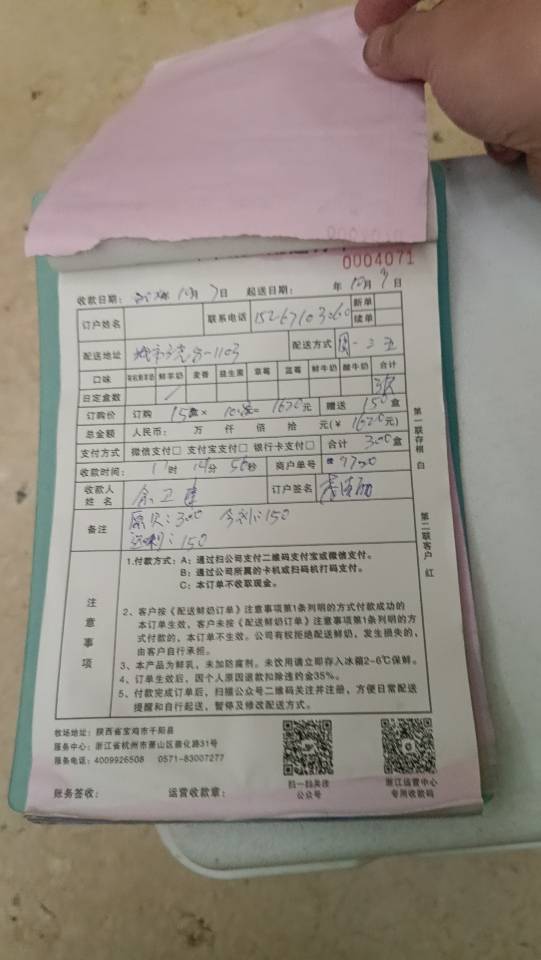 0004071
收款日期： 10月7日 起送日期： 年10月9日
订户姓名 联系电话 15267103060 新单 续单
配送地址 8-1103 配送方式 周一三五
口味 鲜羊奶 麦香 益生菌 草莓 蓝莓 鲜牛奶 酸牛奶 合计
日定盒数
订购价 订购 150盒× 10.8= 1620元 赠送 150盒
总金额 人民币： 万 仟 佰 拾 元(¥ 1620元)
支付方式 微信支付□ 支付宝支付□ 银行卡支付□ 合计 300盒
收款时间： 11时 14分 56秒 商户单号 9750
收款人姓名 余卫建 订户签名
备注 原欠：300 今剩：150
送剩：150
注意事项
1.付款方式：A：通过扫公司支付二维码支付宝或微信支付。
B：通过公司所属的卡机或扫码机打码支付。
C：本订单不收取现金。
2、客户按《配送鲜奶订单》注意事项第1条列明的方式付款成功的
本订单生效，客户未按《配送鲜奶订单》注意事项第1条列明的方
式付款的，本订单不生效。公司有权拒绝配送鲜奶，发生损失的，
由客户自行承担。
3、本产品为鲜乳，未加防腐剂。未饮用请立即存入冰箱2-6℃保鲜。
4、订单生效后，因个人原因退款扣除违约金35%。
5、付款完成订单后，扫描公众号二维码关注并注册，方便日常配送
提醒和自行起送，暂停及修改配送方式。
第一联存根 白
第二联客户 红
牧场地址：陕西省宝鸡市千阳县
服务中心：浙江省杭州市萧山区萧化路31号
服务电话：4009926508 0571-83007277
扫一扫关注
公众号
浙江运营中心
专用收款码
账务签收： 运营收款章：